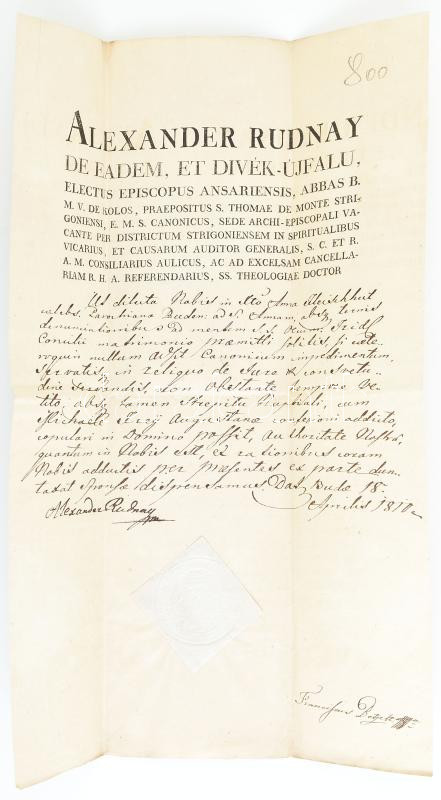 800
ALEXANDER RUDNAY
DE EADEM, ET DIVÉK-ÚJFALU,
ELECTUS EPISCOPUS ANSARIENSIS, ABBAS B.
M. V. DE KOLOS, PRAEPOSITUS S. THOMAE DE MONTE STRI-
GONIENSI, E. M. S. CANONICUS, SEDE ARCHI-EPISCOPALI VA-
CANTE PER DISTRICTUM STRIGONIENSEM IN SPIRITUALIBUS
VICARIUS, ET CAUSARUM AUDITOR GENERALIS, S. C. ET R.
A. M. CONSILIARIUS AULICUS, AC AD EXCELSAM CANCELLA-
RIAM R. H. A. REFERENDARIUS, SS. THEOLOGIAE DOCTOR
Ut dilecta Nobis in Xto Anna
caelebs, Parochiana Buden: ad S. Annam, absq ternis
denunciationibus ad mentem S. S. Oecum: Trid:
Concilii matrimonio praemitti solitis, si caete-
roquin nullum adsit Canonicum impedimentum,
Servatis in reliquo de Jure & consvetu-
dine servandis, non obstante tempore ve-
tito, absq tamen Strepitu Nuptiali, cum
Michaele Augustanae confessioni addicto,
copulari in Domino possit, Authoritate Nostra,
quantum in Nobis est, ex rationibus coram
Nobis adductis per praesentes ex parte dun-
taxat Sponsae dispensamus. Dat. Budae 18.
Aprilis 1810
Alexander Rudnay
Franciscus